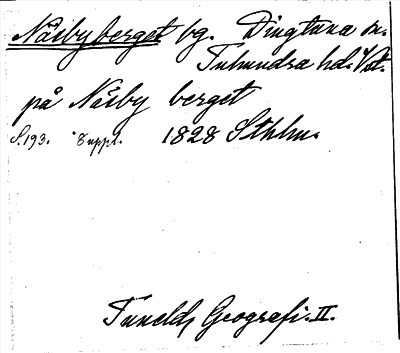 Näsbyberget bg. Dingtuna sn.
Tuhundra hd. Vstm.
på Näsby berget
S. 193. Suppl. 1828 Sthlm.
Tunelds Geografi. II.